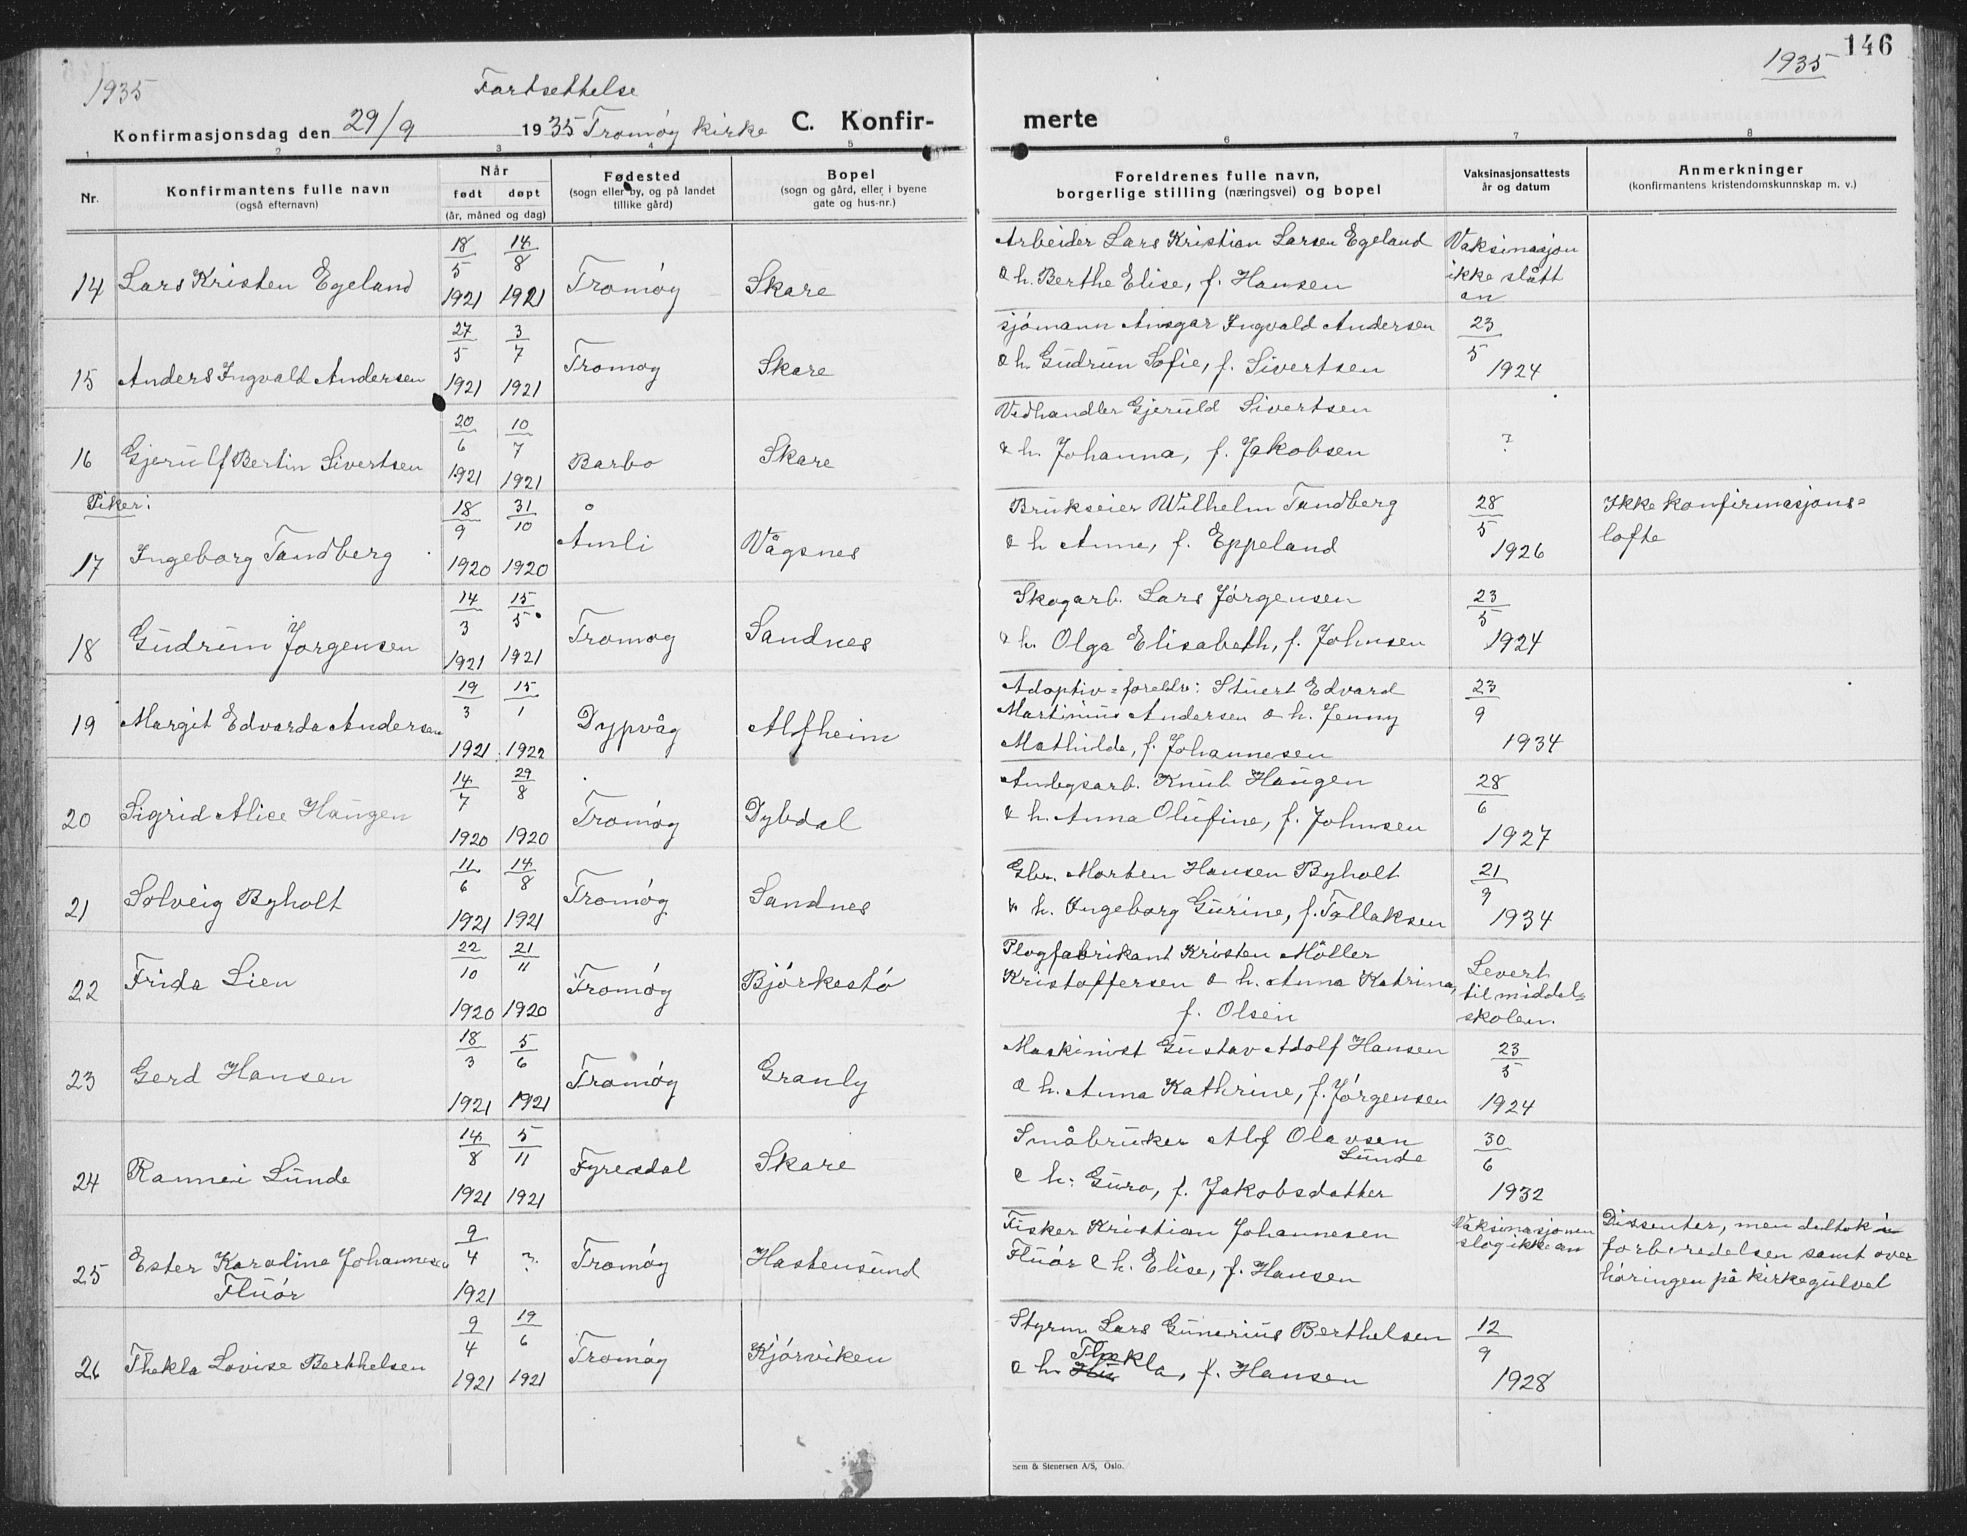 1935
Fortsettelse
Konfirmasjonsdag den 29/9 1935 Tromøy kirke C. Konfir-
1 2 3 4 5
Nr.
Konfirmantens fulle navn
(også efternavn)
Når
født døpt
(år, måned og dag)
Fødested
(sogn eller by, og på landet
tillike gård)
Bopel
(sogn og gård, eller i byene
gate og hus-nr.)
14 Lars Kristen Egeland 18/5 1921 14/8 1921 Tromøy Skare
15 Anders Ingvald Andersen 27/5 1921 3/7 1921 Tromøy Skare
16 Gjerulf Bertin Sivertsen 20/6 1921 10/7 1921 Barbo Skare
Piker:
17 Ingeborg Tandberg 18/9 1920 31/10 1920 Åmli Vågsnes
18 Gudrun Jørgensen 14/3 1921 15/5 1921 Tromøy Sandnes
19 Margit Edvarda Andersen 19/3 1921 15/1 1922 Dypvåg Alfheim
20 Sigrid Alice Haugen 14/7 1920 29/8 1920 Tromøy Dybdal
21 Solveig Byholt 11/6 1921 14/8 1921 Tromøy Sandnes
22 Frida Lien 22/10 1920 21/11 1920 Tromøy Bjørkestø
23 Gerd Hansen 18/3 1921 5/6 1921 Tromøy Granly
24 Rannei Lunde 14/8 1921 5/11 1921 Fyresdal Skare
25 Ester Karoline Johannesen 9/4 1921 ? Tromøy Hastensund
Fluór
26 Thekla Lovise Berthelsen 9/4 1921 19/6 1921 Tromøy Kjørviken
146
1935
merte
6 7 8
Foreldrenes fulle navn,
borgerlige stilling (næringsvei) og bopel
Vaksinasjonsattests
år og datum
Anmerkninger
(konfirmantens kristendomskunnskap m. v.)
Arbeider Lars Kristian Larsen Egeland Vaksinasjon
& h. Berthe Elise, f. Hansen ikke slått
an
sjømann Ansgar Ingvald Andersen 23/5
& h. Gudrun Sofie, f. Sivertsen 1924
Vedhandler Gjeruld Sivertsen
& h. Johanna, f. Jakobsen ?
Brukseier Wilhelm Tandberg 28/5 Ikke konfirmasjons=
& h Anne, f. Eppeland 1926 løfte
Skogarb. Lars Jørgensen 23/5
& h. Olga Elisabeth, f. Johnsen 1924
Adoptiv=foreldr: Stuert Edvard 23/9
Martinius Andersen & h. Jenny
Mathilde, f. Johannesen 1934
Anlegsarb. Knut Haugen 28/6
& h. Anna Olufine, f. Johnsen 1927
Gbr. Morten Hansen Byholt 21/9
& h. Ingeborg Gurine, f. Tallaksen 1934
Plogfabrikant Kristen Møller Levert
Kristoffersen & h. Anna Katrina, til middel=
f. Olsen skolen.
Maskinist Gustav Adolf Hansen 23/5
& h. Anna Kathrine, f. Jørgensen 1924
Småbruker Alf Olavsen 30/6
Lunde
& h. Guro, f. Jakobsdatter 1932
Fisker Kristian Johannesen Vaksinasjonen Dissenter, men deltok i
Fluór & h. Elise, f. Hansen slog ikke an forberedelsen samt over
høringen på kirkegulvet
Styrm Lars Gunerius Berthelsen 12/9
& h. Thekla, f. Hansen 1928
Sem & Stenersen A/S, Oslo.